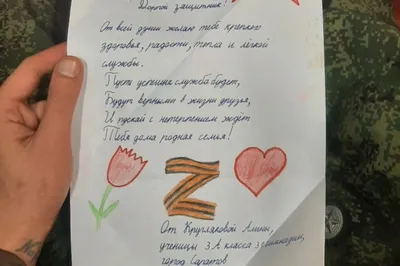 Дорогой защитник!
От всей души желаю тебе крепкого
здоровья, радости, тепла и лёгкой
службы.
Пусть успешна служба будет,
Будут верными в жизни друзья,
И пускай с нетерпением ждёт
Тебя дома родная семья!
Z
От Кругляковой Алины,
ученицы 3А класса гимназии,
город Саратов